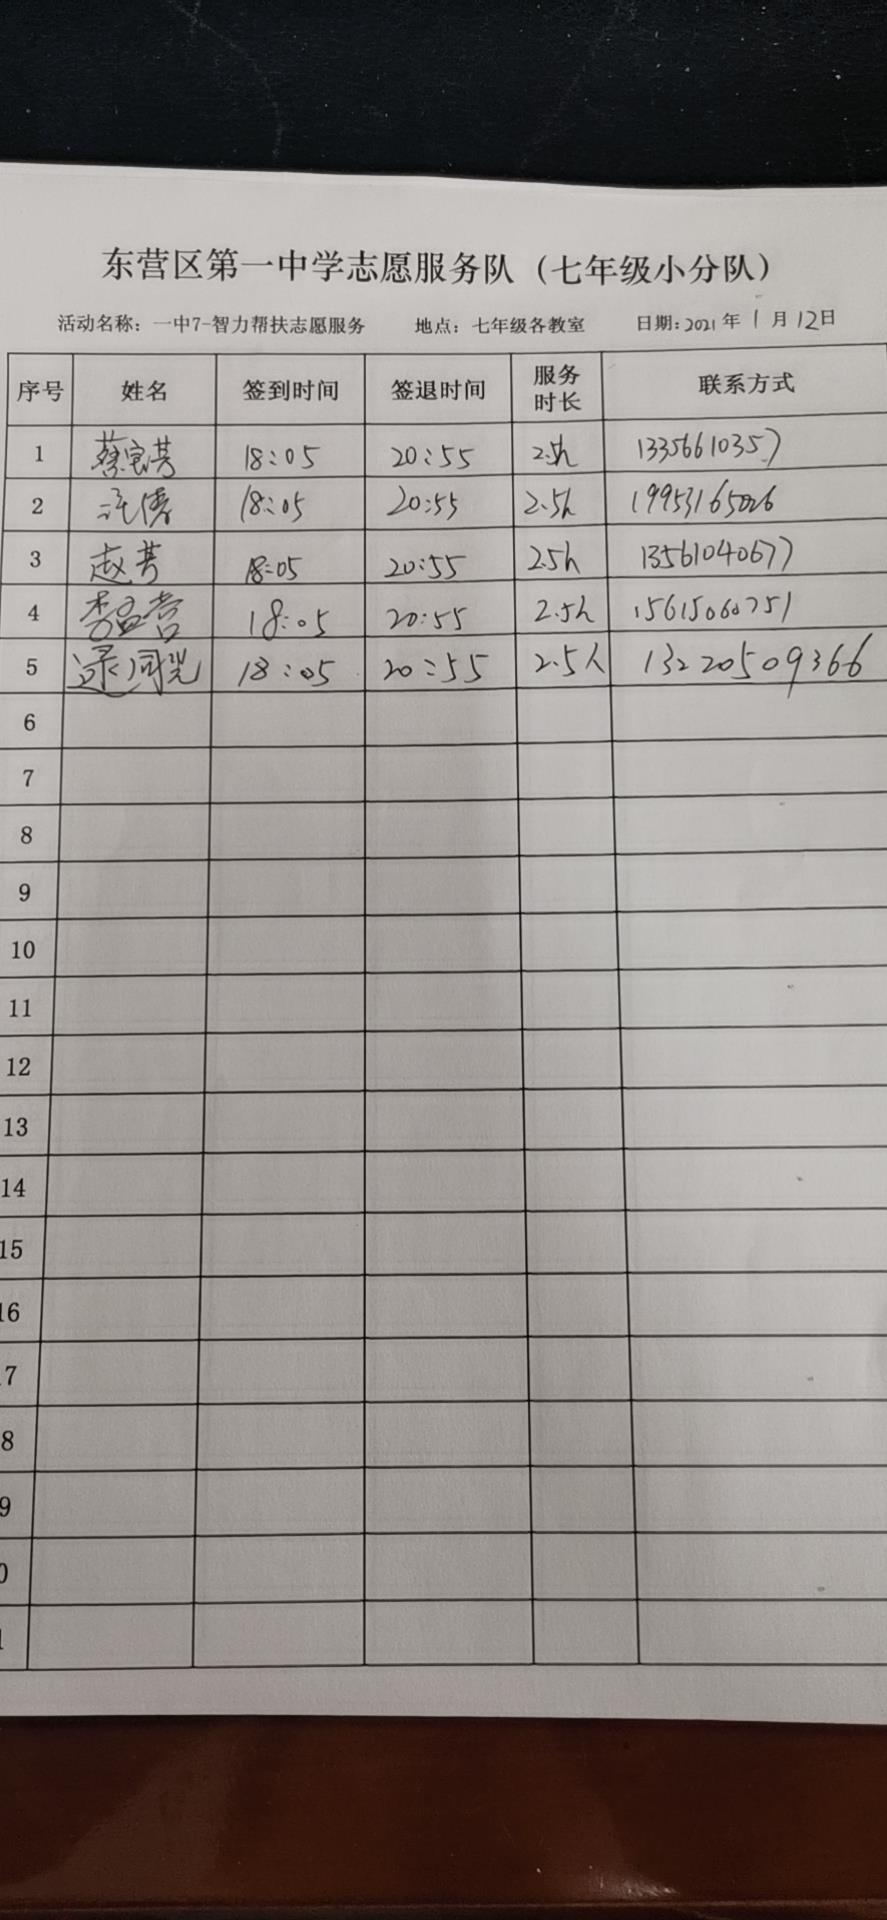 东营区第一中学志愿服务队（七年级小分队）
活动名称：一中7-智力帮扶志愿服务 地点：七年级各教室 日期：2021年1月12日
序号 姓名 签到时间 签退时间 服务时长 联系方式
1 18:05 20:55 2.5h 13356610357
2 18:05 20:55 2.5h 19953165026
3 赵芳 18:05 20:55 2.5h 13561040677
4 李孟营 18:05 20:55 2.5h 15615060751
5 18:05 20:55 2.5h 13220509366
6
7
8
9
10
11
12
13
14
15
16
7
8
9
0
1